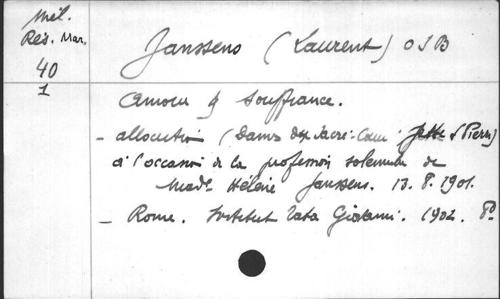 Mél.
Rés. Mar.
40
1
Janssens (Laurent) OSB
Amour & Souffrance.
- allocution (Dames du Sacré-Cœur Jette St Pierre)
à l'occasion de la profession solennelle de
Mad. Hélène Janssens. 13. 8. 1901.
- Rome. Institut Giovanni. 1902. 8º